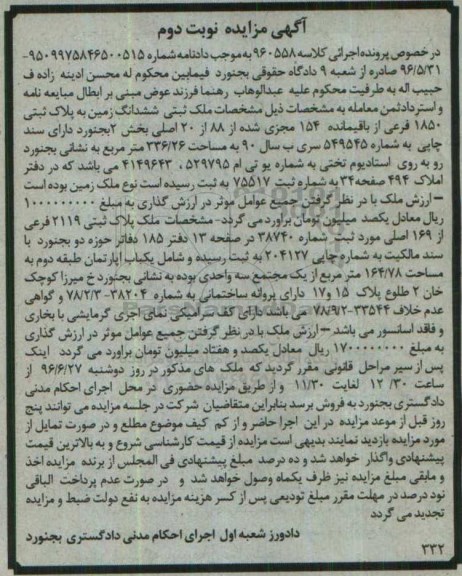 آگهی مزایده نوبت دوم
در خصوص پرونده اجرائی کلاسه ۹۶۰۵۵۸ به موجب دادنامه شماره ۹۵۰۹۹۷۵۸۴۶۵۰۰۵۱۵-
۹۶/۵/۳۱ صادره از شعبه ۹ دادگاه حقوقی بجنورد فیمابین محکوم له محسن ادینه زاده ف
حبیب اله به طرفیت محکوم علیه عبدالوهاب رهنما فرزند عوض مبنی بر ابطال مبایعه نامه
و استرداد ثمن معامله به مشخصات ذیل مشخصات ملک ثبتی ششدانگ زمین به پلاک ثبتی
۱۸۵۰ فرعی از باقیمانده ۱۵۴ مجزی شده از ۸۸ از ۲۰ اصلی بخش ۲ بجنورد دارای سند
چاپی به شماره ۵۴۹۵۴۵ سری ب سال ۹۰ به مساحت ۳۳۶/۲۶ متر مربع به نشانی بجنورد
رو به روی استادیوم تختی به شماره یو تی ام ۰۵۲۹۷۹۵ ۴۱۴۹۶۴۳ می باشد که در دفتر
املاک ۴۹۴ صفحه ۳۴ به شماره ثبت ۷۵۵۱۷ به ثبت رسیده است نوع ملک زمین بوده است
– ارزش ملک با در نظر گرفتن جمیع عوامل موثر در ارزش گذاری به مبلغ ۱۰۰۰۰۰۰۰۰۰
ریال معادل یکصد میلیون تومان براورد می گردد- مشخصات ملک پلاک ثبتی ۲۱۱۹ فرعی
از ۱۶۹ اصلی مورد ثبت شماره ۳۸۷۴۰ در صفحه ۱۳ دفتر ۱۸۵ دفاتر حوزه دو بجنورد با
سند مالکیت به شماره چاپی ۲۰۴۱۲۷ به ثبت رسیده و شامل یکباب اپارتمان طبقه دوم به
مساحت ۱۶۴/۷۸ متر مربع از یک مجتمع سه واحدی بوده به نشانی بجنورد خ میرزا کوچک
خان ۲ طلوع پلاک ۱۵ و۱۷ دارای پروانه ساختمانی به شماره ۳۸۲۰۴-۷۸/۲/۳ و گواهی
عدم خلاف ۳۳۵۴۴-۷۸/۹/۲ می باشد دارای کف سرامیکی نمای اجری گرمایشی با بخاری
و فاقد اسانسور می باشد – ارزش ملک با در نظر گرفتن جمیع عوامل موثر در ارزش گذاری
به مبلغ ۱۷۰۰۰۰۰۰۰۰ ریال معادل یکصد و هفتاد میلیون تومان براورد می گردد اینک
پس از سیر مراحل قانونی مقرر گردید که ملک های مذکور در روز دوشنبه ۹۶/۶/۲۷ از
ساعت ۳۰/ ۱۲ لغایت ۱۱/۳۰ و از طریق مزایده حضوری در محل اجرای احکام مدنی
دادگستری بجنورد به فروش برسد بنابراین متقاضیان شرکت در جلسه مزایده می توانند پنج
روز قبل از موعد مزایده در این اجرا حاضر و از کم کیف موضوع مطلع و در صورت تمایل از
مورد مزایده بازدید نمایند بدیهی است مزایده از قیمت کارشناسی شروع و به بالاترین قیمت
پیشنهادی واگذار خواهد شد و ده درصد مبلغ پیشنهادی فی المجلس از برنده مزایده اخذ
و مابقی مبلغ مزایده نیز ظرف یکماه وصول خواهد شد و در صورت عدم پرداخت الباقی
نود درصد در مهلت مقرر مبلغ تودیعی پس از کسر هزینه مزایده به نفع دولت ضبط و مزایده
تجدید می گردد
دادورز شعبه اول اجرای احکام مدنی دادگستری بجنورد
۳۳۲